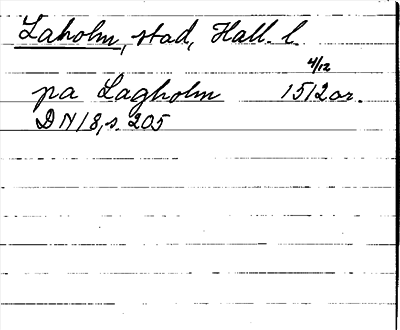 Laholm, stad, Hall. l.
4/12
pa Lagholm 1512 or.
DN18, s. 205